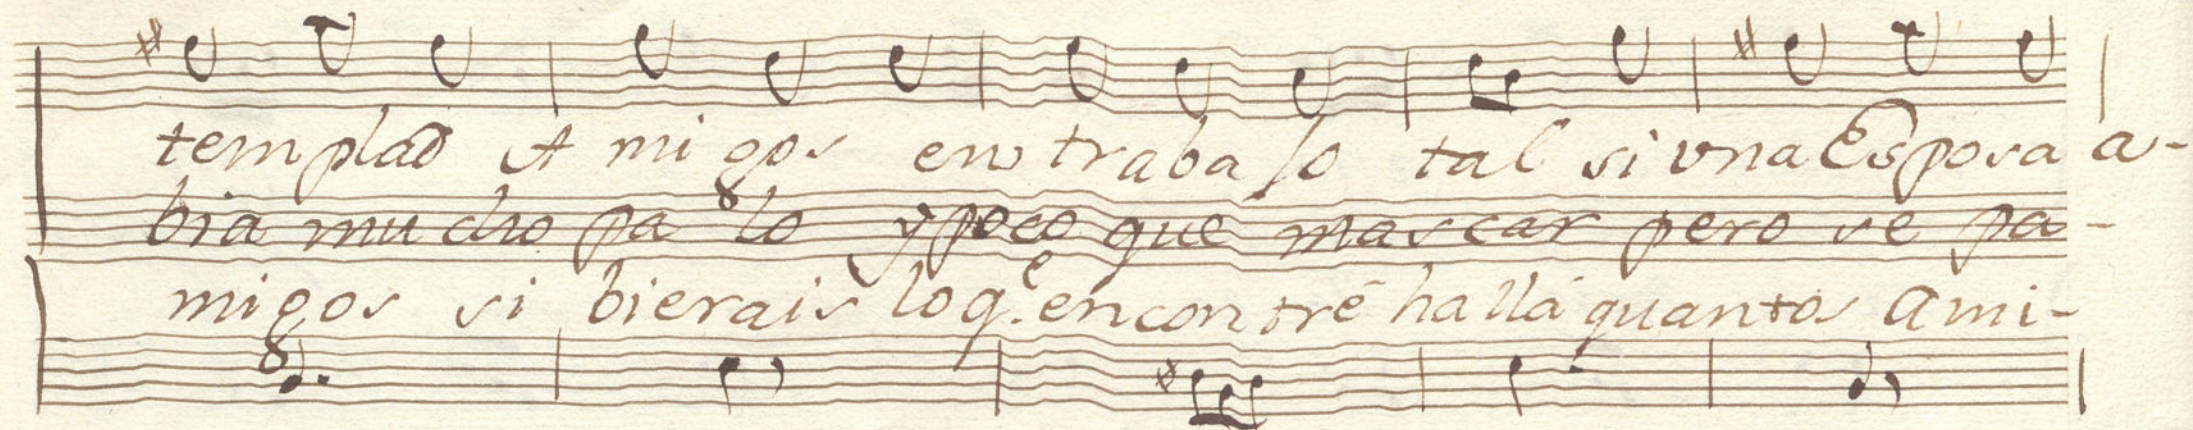 templad A migos en trabajo tal si vna Esposa a-
bia mucho pa lo y poco que mascar pero se pa-
migos si bierais lo q.e encontré hallá quantos Ami-